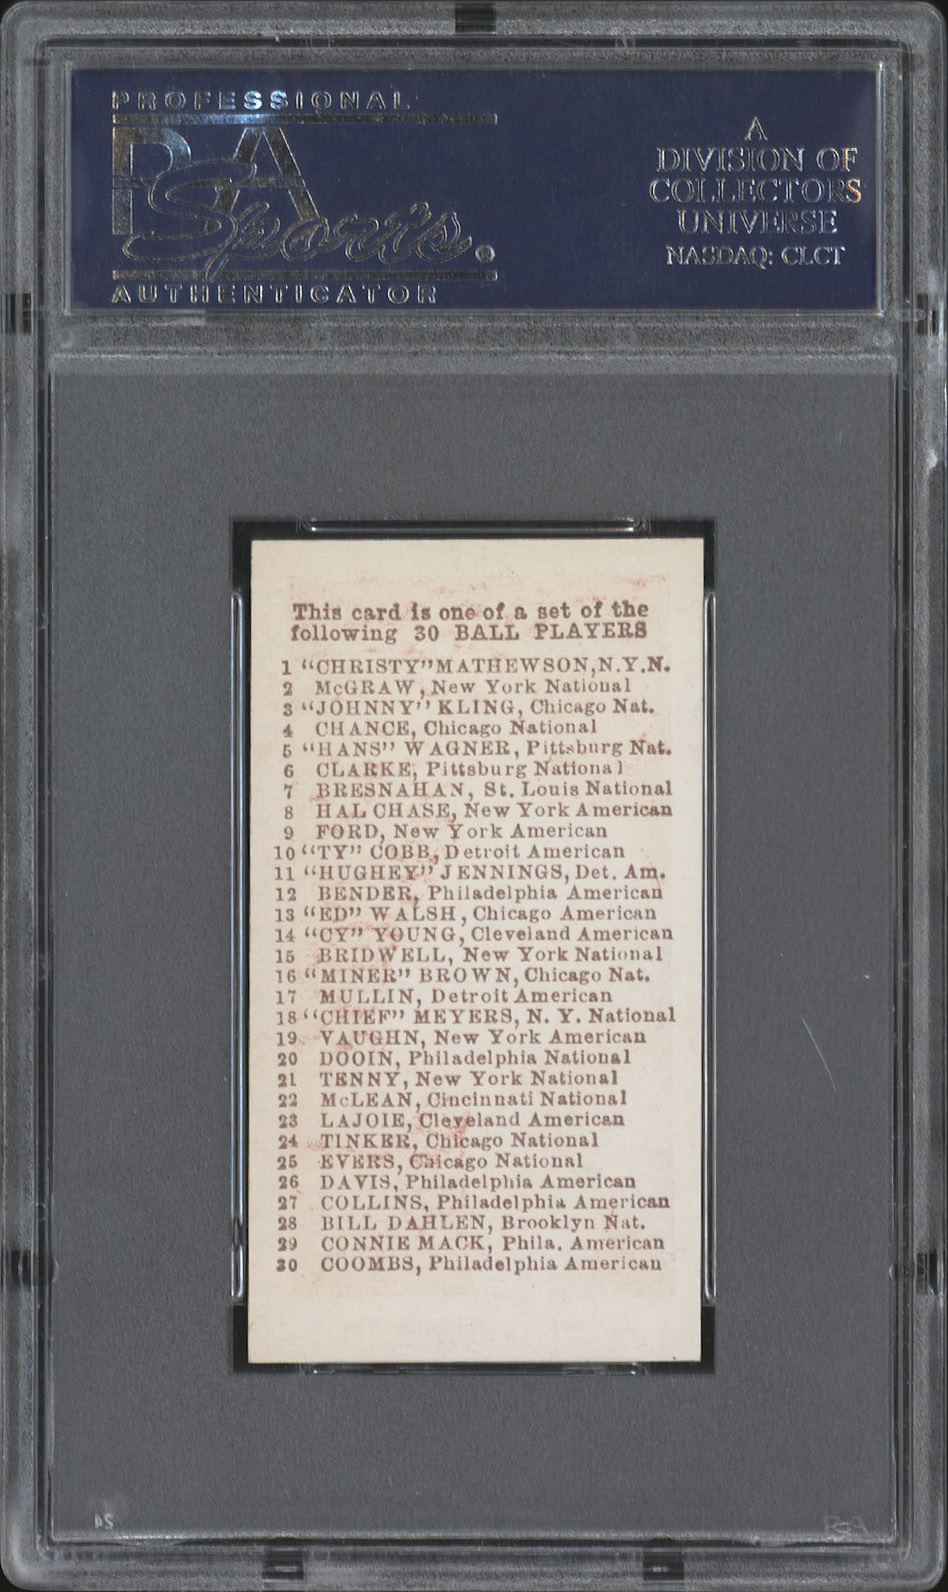 PROFESSIONAL
PSA
Sports®
AUTHENTICATOR
A
DIVISION OF
COLLECTORS
UNIVERSE
NASDAQ: CLCT
This card is one of a set of the
following 30 BALL PLAYERS
1 “CHRISTY” MATHEWSON, N.Y.N.
2 McGRAW, New York National
3 “JOHNNY” KLING, Chicago Nat.
4 CHANCE, Chicago National
5 “HANS” WAGNER, Pittsburg Nat.
6 CLARKE, Pittsburg National
7 BRESNAHAN, St. Louis National
8 HAL CHASE, New York American
9 FORD, New York American
10 “TY” COBB, Detroit American
11 “HUGHEY” JENNINGS, Det. Am.
12 BENDER, Philadelphia American
13 “ED” WALSH, Chicago American
14 “CY” YOUNG, Cleveland American
15 BRIDWELL, New York National
16 “MINER” BROWN, Chicago Nat.
17 MULLIN, Detroit American
18 “CHIEF” MEYERS, N. Y. National
19 VAUGHN, New York American
20 DOOIN, Philadelphia National
21 TENNY, New York National
22 McLEAN, Cincinnati National
23 LAJOIE, Cleveland American
24 TINKER, Chicago National
25 EVERS, Chicago National
26 DAVIS, Philadelphia American
27 COLLINS, Philadelphia American
28 BILL DAHLEN, Brooklyn Nat.
29 CONNIE MACK, Phila. American
30 COOMBS, Philadelphia American
24
PSA